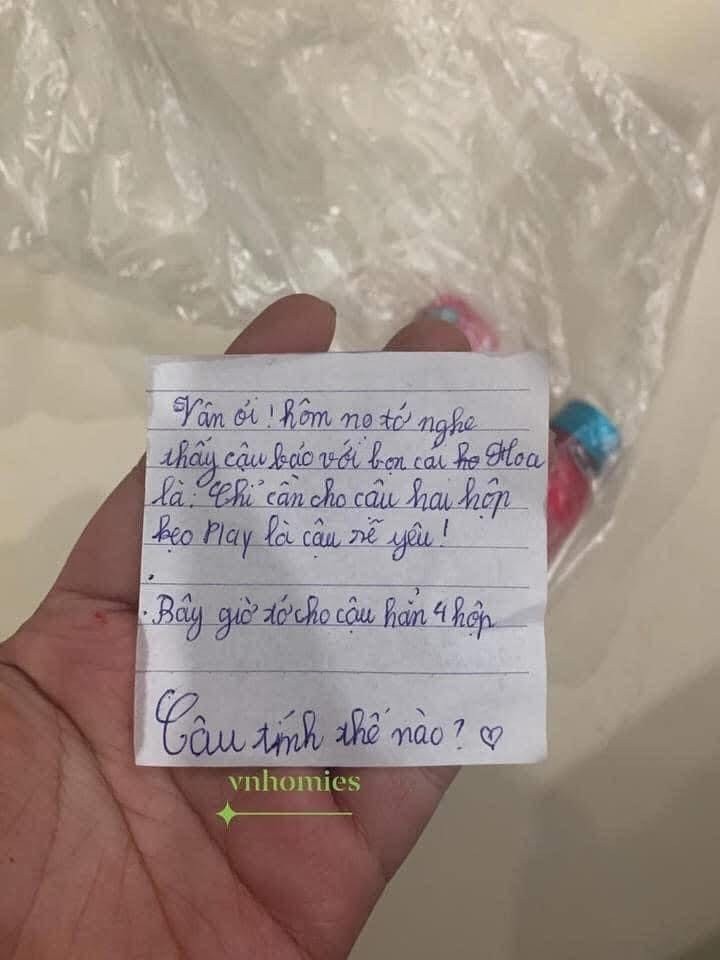 Vân ơi! hôm nọ tớ nghe
thấy cậu bảo với bọn cái Hoa
là: Chỉ cần cho cậu hai hộp
kẹo Play là cậu sẽ yêu!
Bây giờ tớ cho cậu hẳn 4 hộp
Cậu tính thế nào? ♡
vnhomies